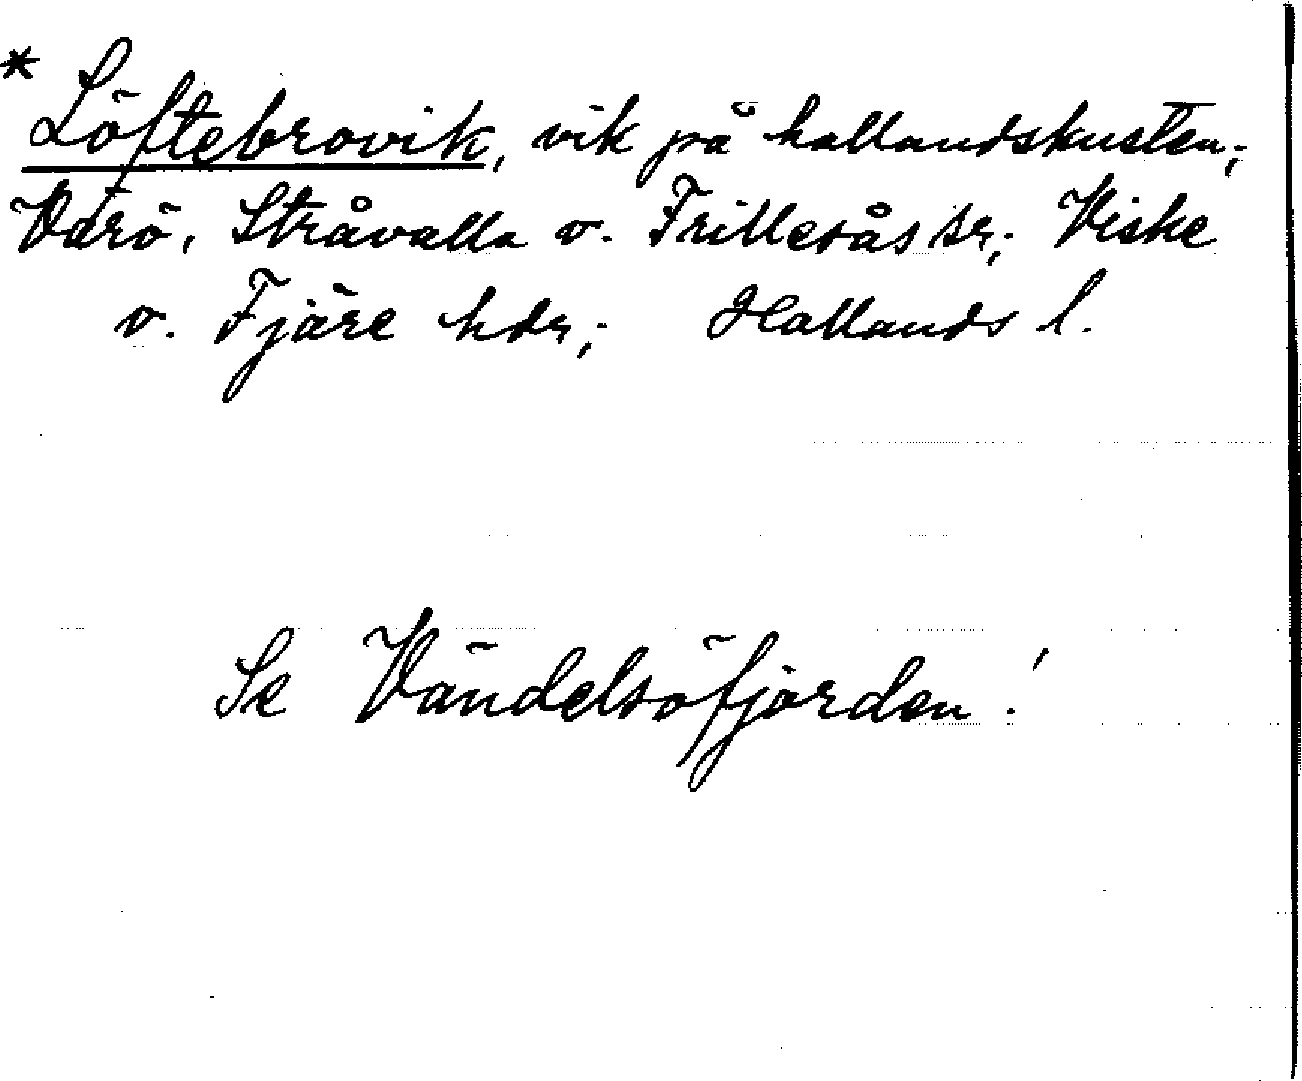 * Löftebrovik, vik på hallandskusten;
Värö, Stråvalla o. Frillesås snr; Viske
o. Fjäre hdr; Hallands l.
Se Vändelsöfjorden!